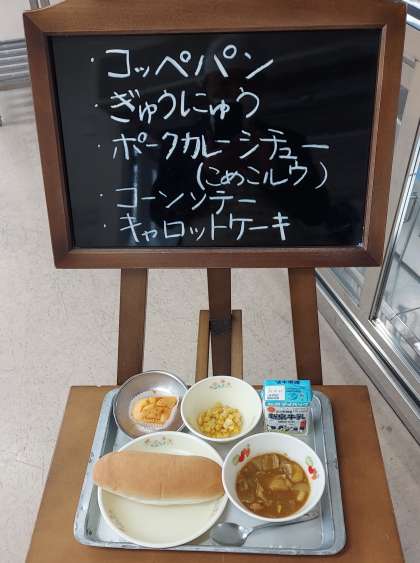 ・コッペパン
・ぎゅうにゅう
・ポークカレーシチュー
(こめこルウ)
・コーンソテー
・キャロットケーキ